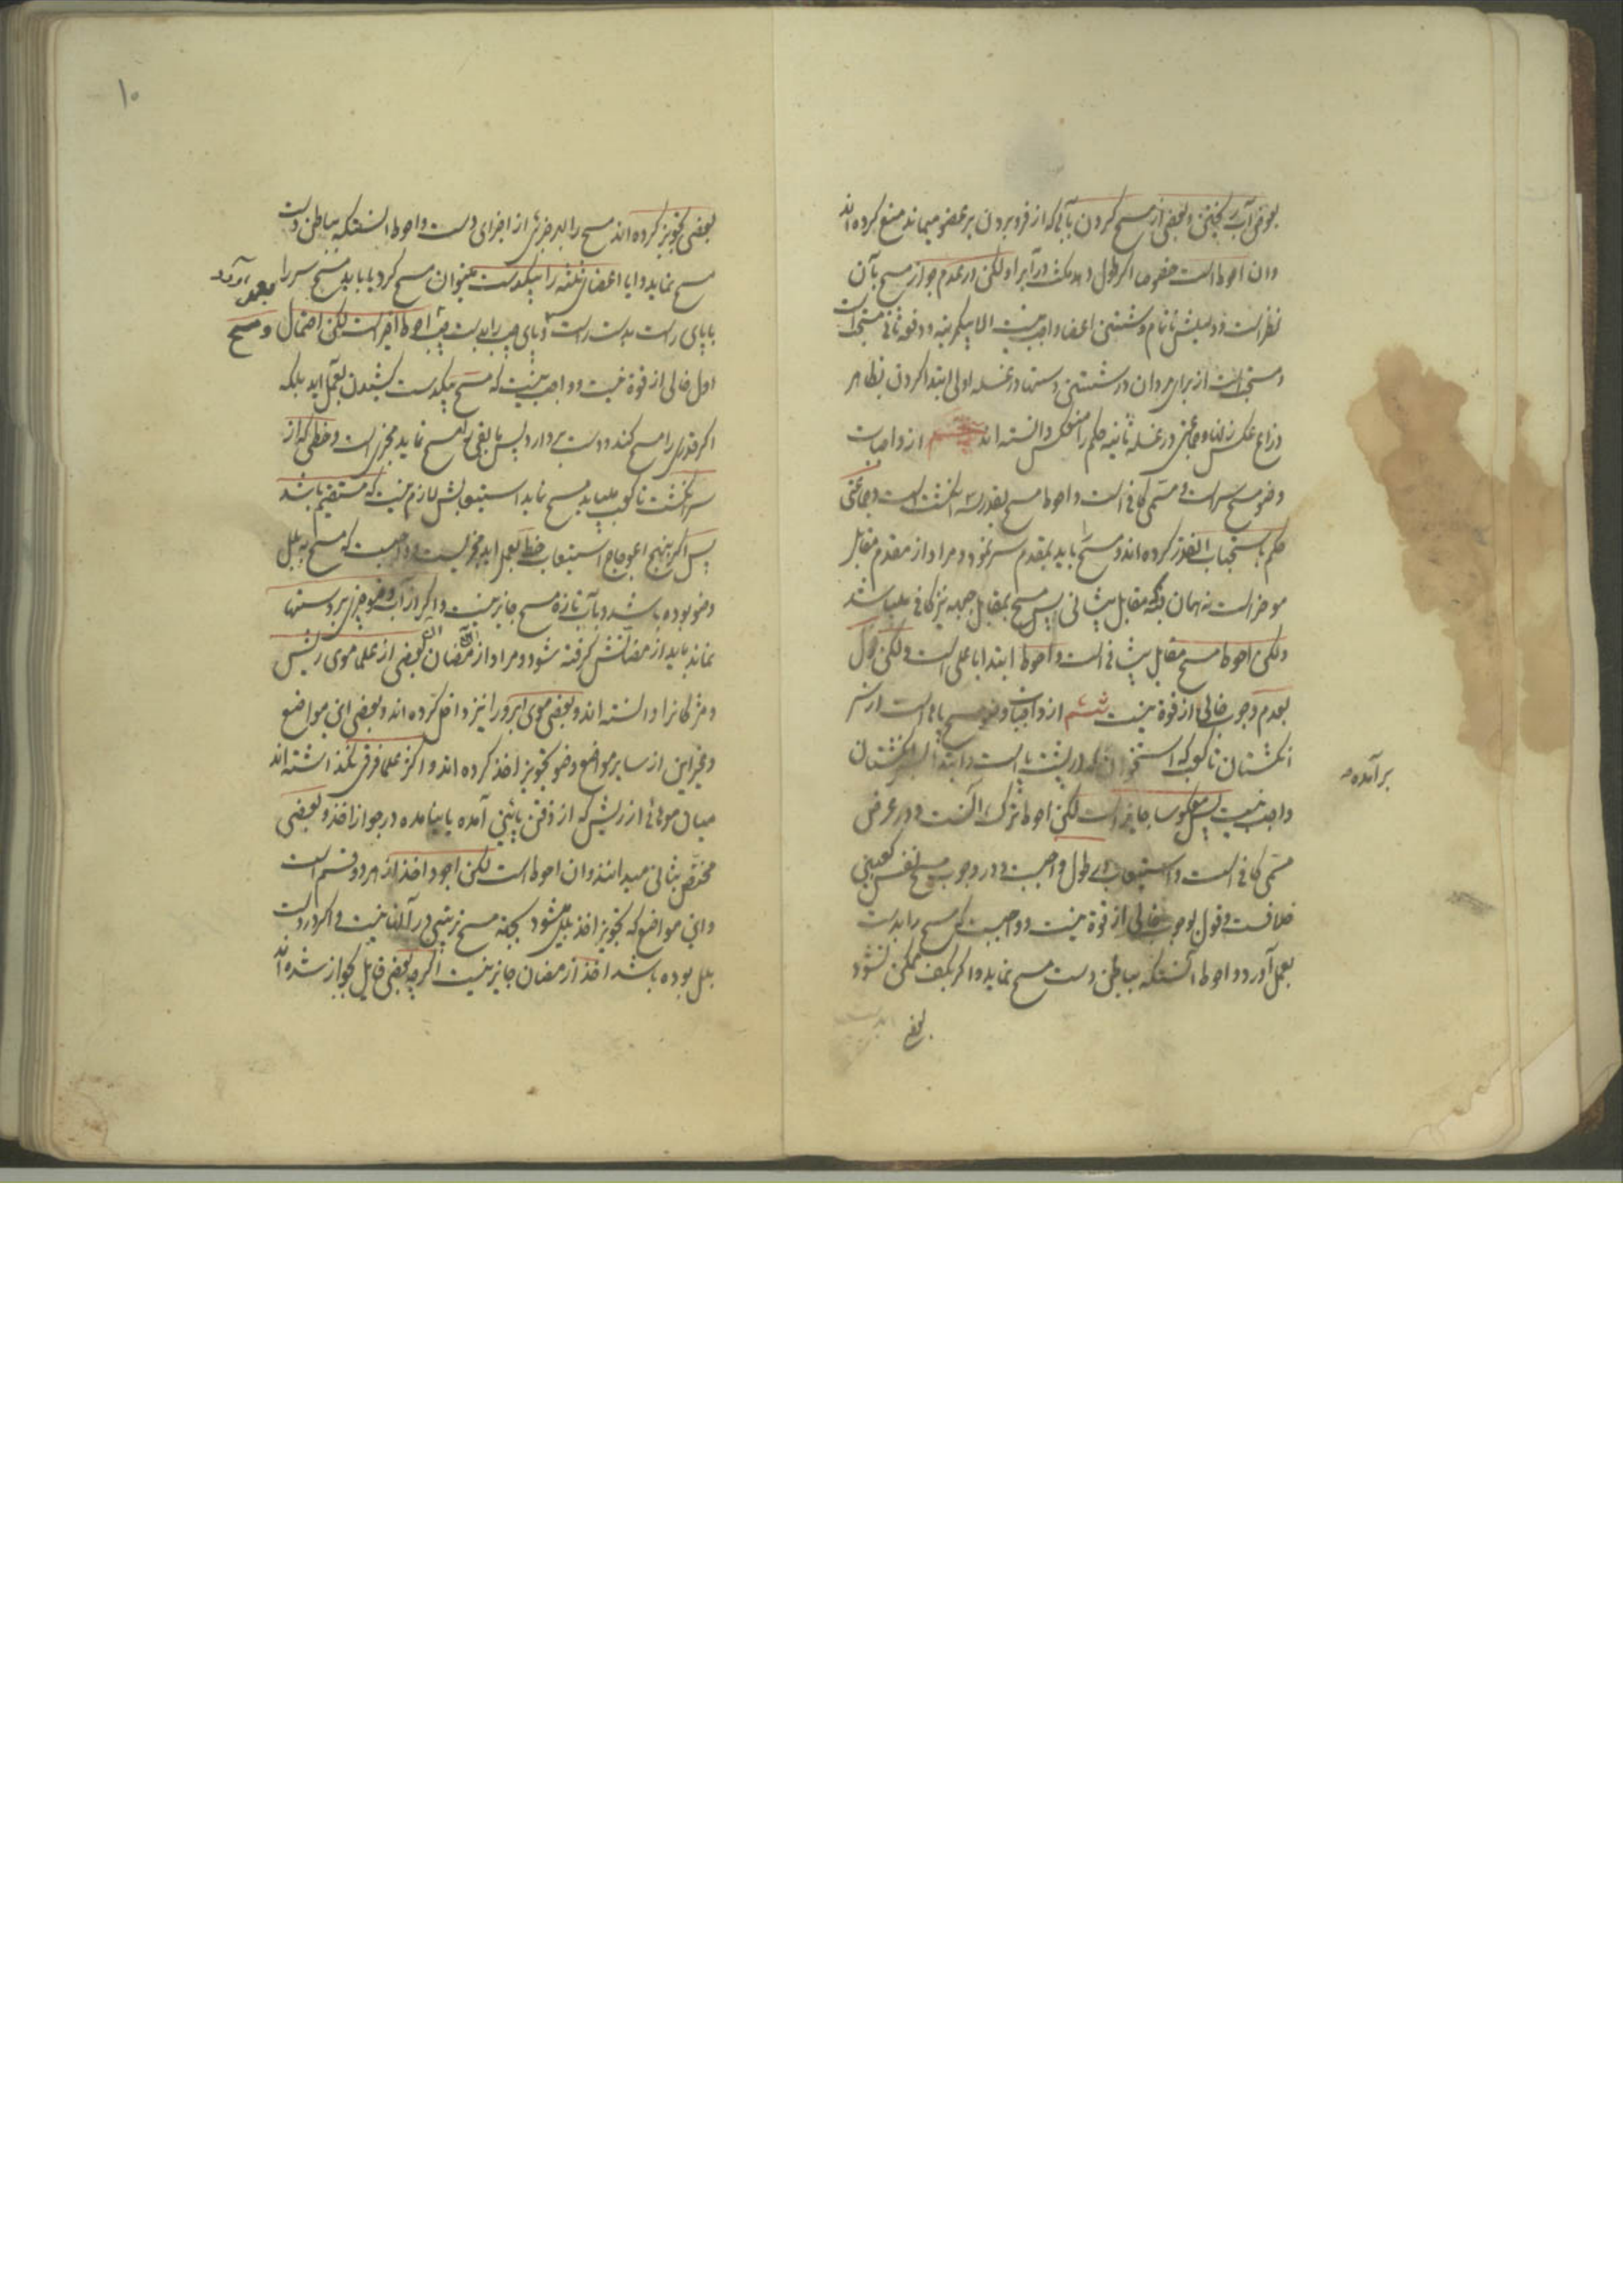 بعوض آب ریختن و بعضی از مسح کردن بآبی که از فرو بردن بر عضو میماند منع کرده اند
و ان احوط است خصوصا اکر طول دهد مکث در آب را و لکن در عدم جواز مسح بآن
نظر است و دلیلش ناتمام و شستن اعضا واجب نیست الا یکمرتبه و دفعه ثانی مستحب است
و مستحب است از برای مردان در شستن دستها در غسله اولی ابتدا کردن بظاهر
ذراع عکس زنان و جماعتی در غسله ثانیه حکم را منعکس دانسته اند از واجبات
وضو مسح سر است و مسمی کافی است و احوط مسح بقدر سه انکشت است و جماعتی
حکم باستحباب القدر کرده اند و مسح باید بمقدم سر نمود و مراد از مقدم مقابل
موخر است نه همان که مقابل پیشانی پس مسح بمقابل جبهه نیز کافی میباشد
و لکن احوط مسح مقابل پیشانی است و احوط ابتدا باعلی است و لکن قول
بعدم وجوب خالی از قوة نیست ششم از واجبات وضو مسح پاها است از سر
انکشتان تا کعب که استخوان در پشت پا است و ابتدا بسر انکشتان
برآمده
واجب نیست پس معکوسا جایز است لکن احوط ترک آنست و در عرض
مسمی کافی است و استیعاب در طول واجب و در وجوب مسح نفس کعبین
خلافست و قول بوجوب خالی از قوة نیست و واجبست که مسح را بدست
بعمل آورد و احوط آنستکه بباطن دست مسح نماید و اکر بکف ممکن نشود
بعضی
۱۰
بعضی تجویز کرده اند مسح را بهر جزئی از اجزای دست و احوط انستکه بباطن دست
مسح نماید و ایا اعضای ثلثه را بیکدست میتوان مسح کرد یا باید مسح سر را بعمل آورد
یا پای راست بدست راست و پای چپ را بدست چپ احوط اخیر است لکن احتمال و مسح
اول خالی از قوة نیست و واجب نیست که مسح بیکدست کشیدن بعمل اید بلکه
اکر قدری را مسح کند و دست بردارد پس باقی را مسح نماید مجزی است و خطی که از
سر انکشت تا کعب میباید مسح نماید استیعابش لازم نیست که مستقیم باشد
پس اکر بنهج اعوجاج استیعاب خط بعمل اید مجزیست و واجبست که مسح به بلل
وضو بوده باشد و بآب تازه مسح جایز نیست و اکر از آب وضو چیزی بر دستها
نماند باید از مضانش کرفته شود و مراد از مضان بعضی از علما موی ریش
و مژکانرا دانسته اند و بعضی موی ابرو را نیز داخل کرده اند و بعضی این مواضع
و غیر این از سایر مواضع وضو تجویز اخذ کرده اند و اکثر علما فرقی نکذاشته اند
میان موهای از ریش که از ذقن پائین آمده یا نیامده در جواز اخذ و بعضی
مختص بثانی میدانند و ان احوط است لکن اجود اخذ از هر دو قسم است
و این مواضع که تجویز اخذ بلل میشود بجهة مسح ترتیبی در آنها نیست و اکر در دست
بلل بوده باشد اخذ از مضان جایز نیست اکر چه بعضی قایل بجواز شده اند